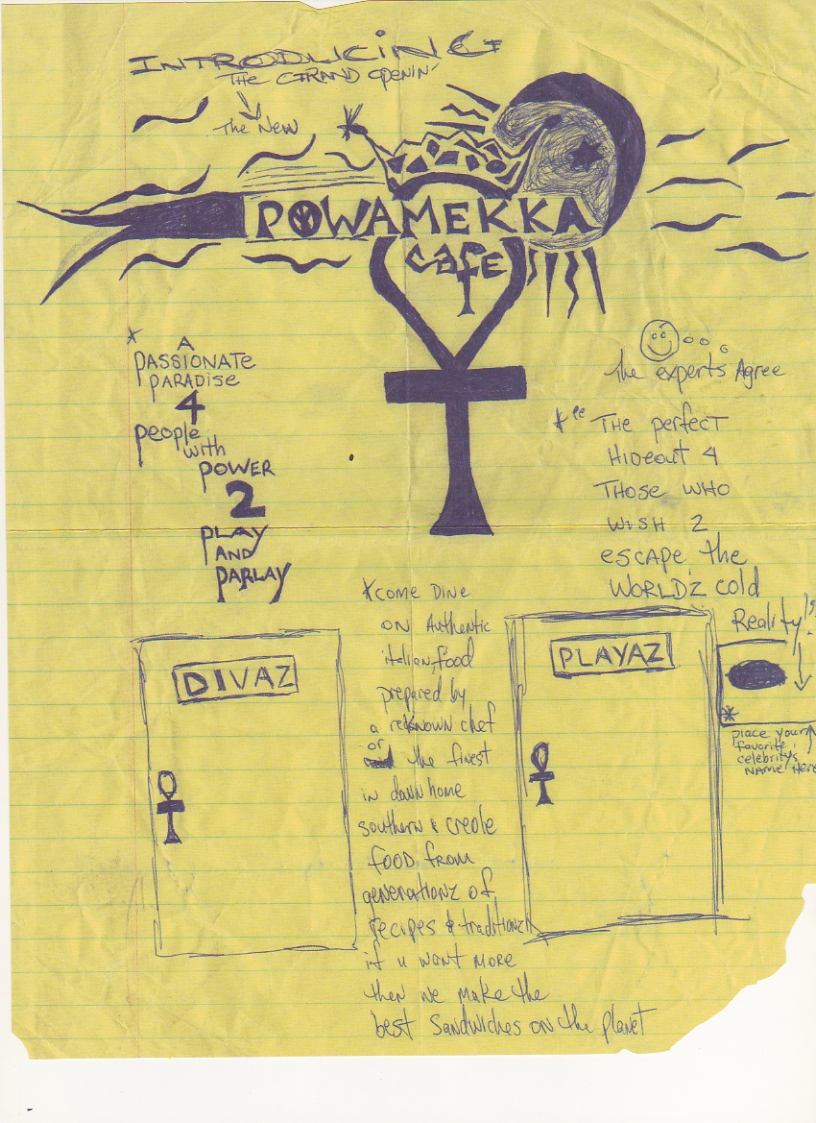 INTRODUCING
The GRAND OPENIN'
The New
POWAMEKKA
cafe
* A
PASSIONATE
PARADISE
4
people
with
POWER
2
PLAY
AND
PARLAY
the experts Agree
* " THE perfect
HiDEOUT 4
THOSE WHO
WISH 2
ESCAPE the
WORLD'Z cold
Reality!"
*COME DINE
ON Authentic
italian food
prepared by
a reknown chef
or the finest
in down home
southern & creole
FOOD FROM
generationz of
recipes & traditionz
if u want more
then we make the
best sandwiches on the planet
DIVAZ
PLAYAZ
*
place your
favorite
celebrity's
NAME Here